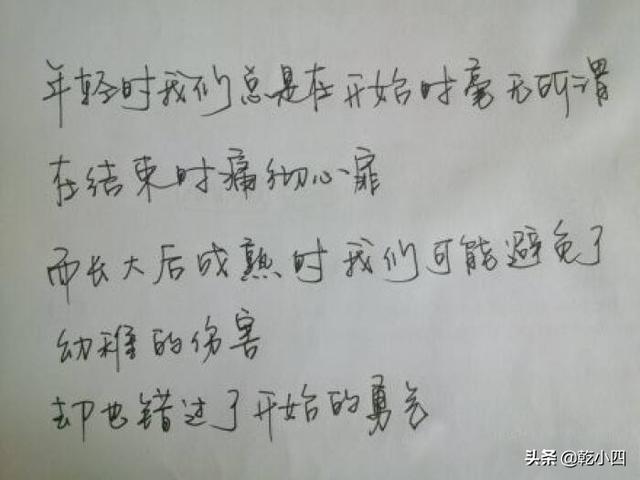 年轻时我们总是在开始时毫无所谓
在结束时痛彻心扉
而长大后成熟时我们可能避免了
幼稚的伤害
却也错过了开始的勇气
头条 @乾小四